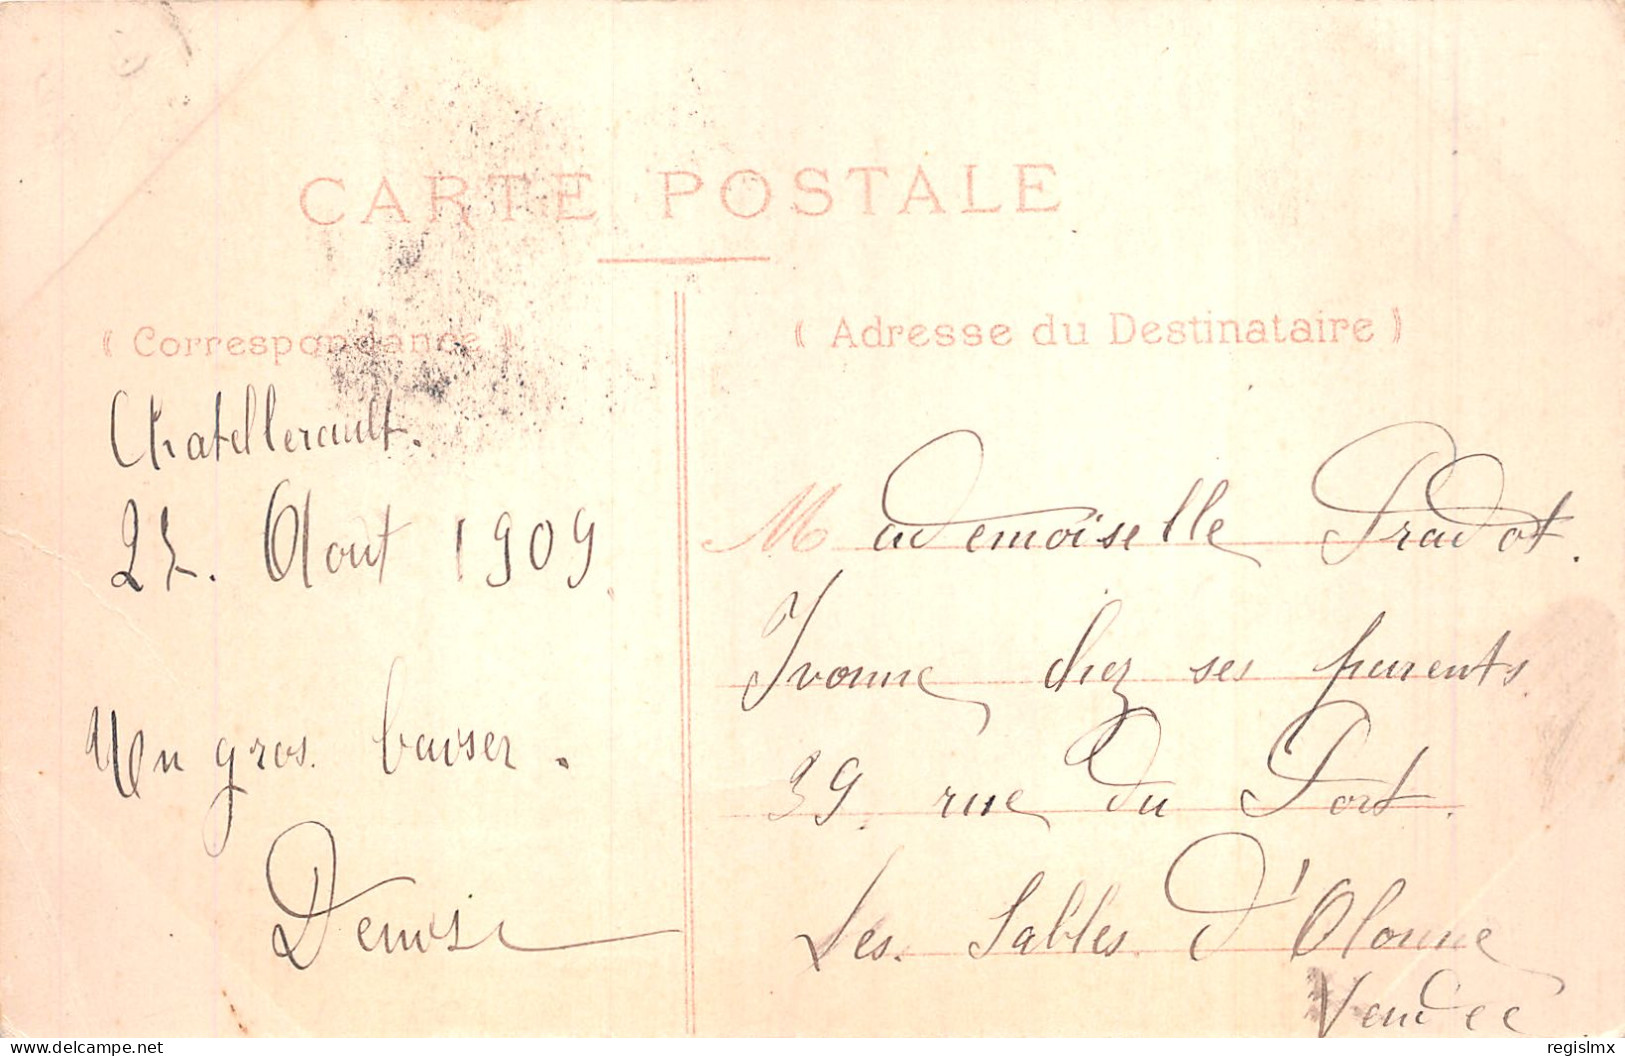 CARTE POSTALE
( Correspondance )
Chatellerault.
Aout 1909
Un gros baiser.
Denise
( Adresse du Destinataire )
Mademoiselle Pradot.
Yvonne chez ses parents
39, rue du Port.
Les Sables d'Olonne
Vendée
delcampe.net
regislmx